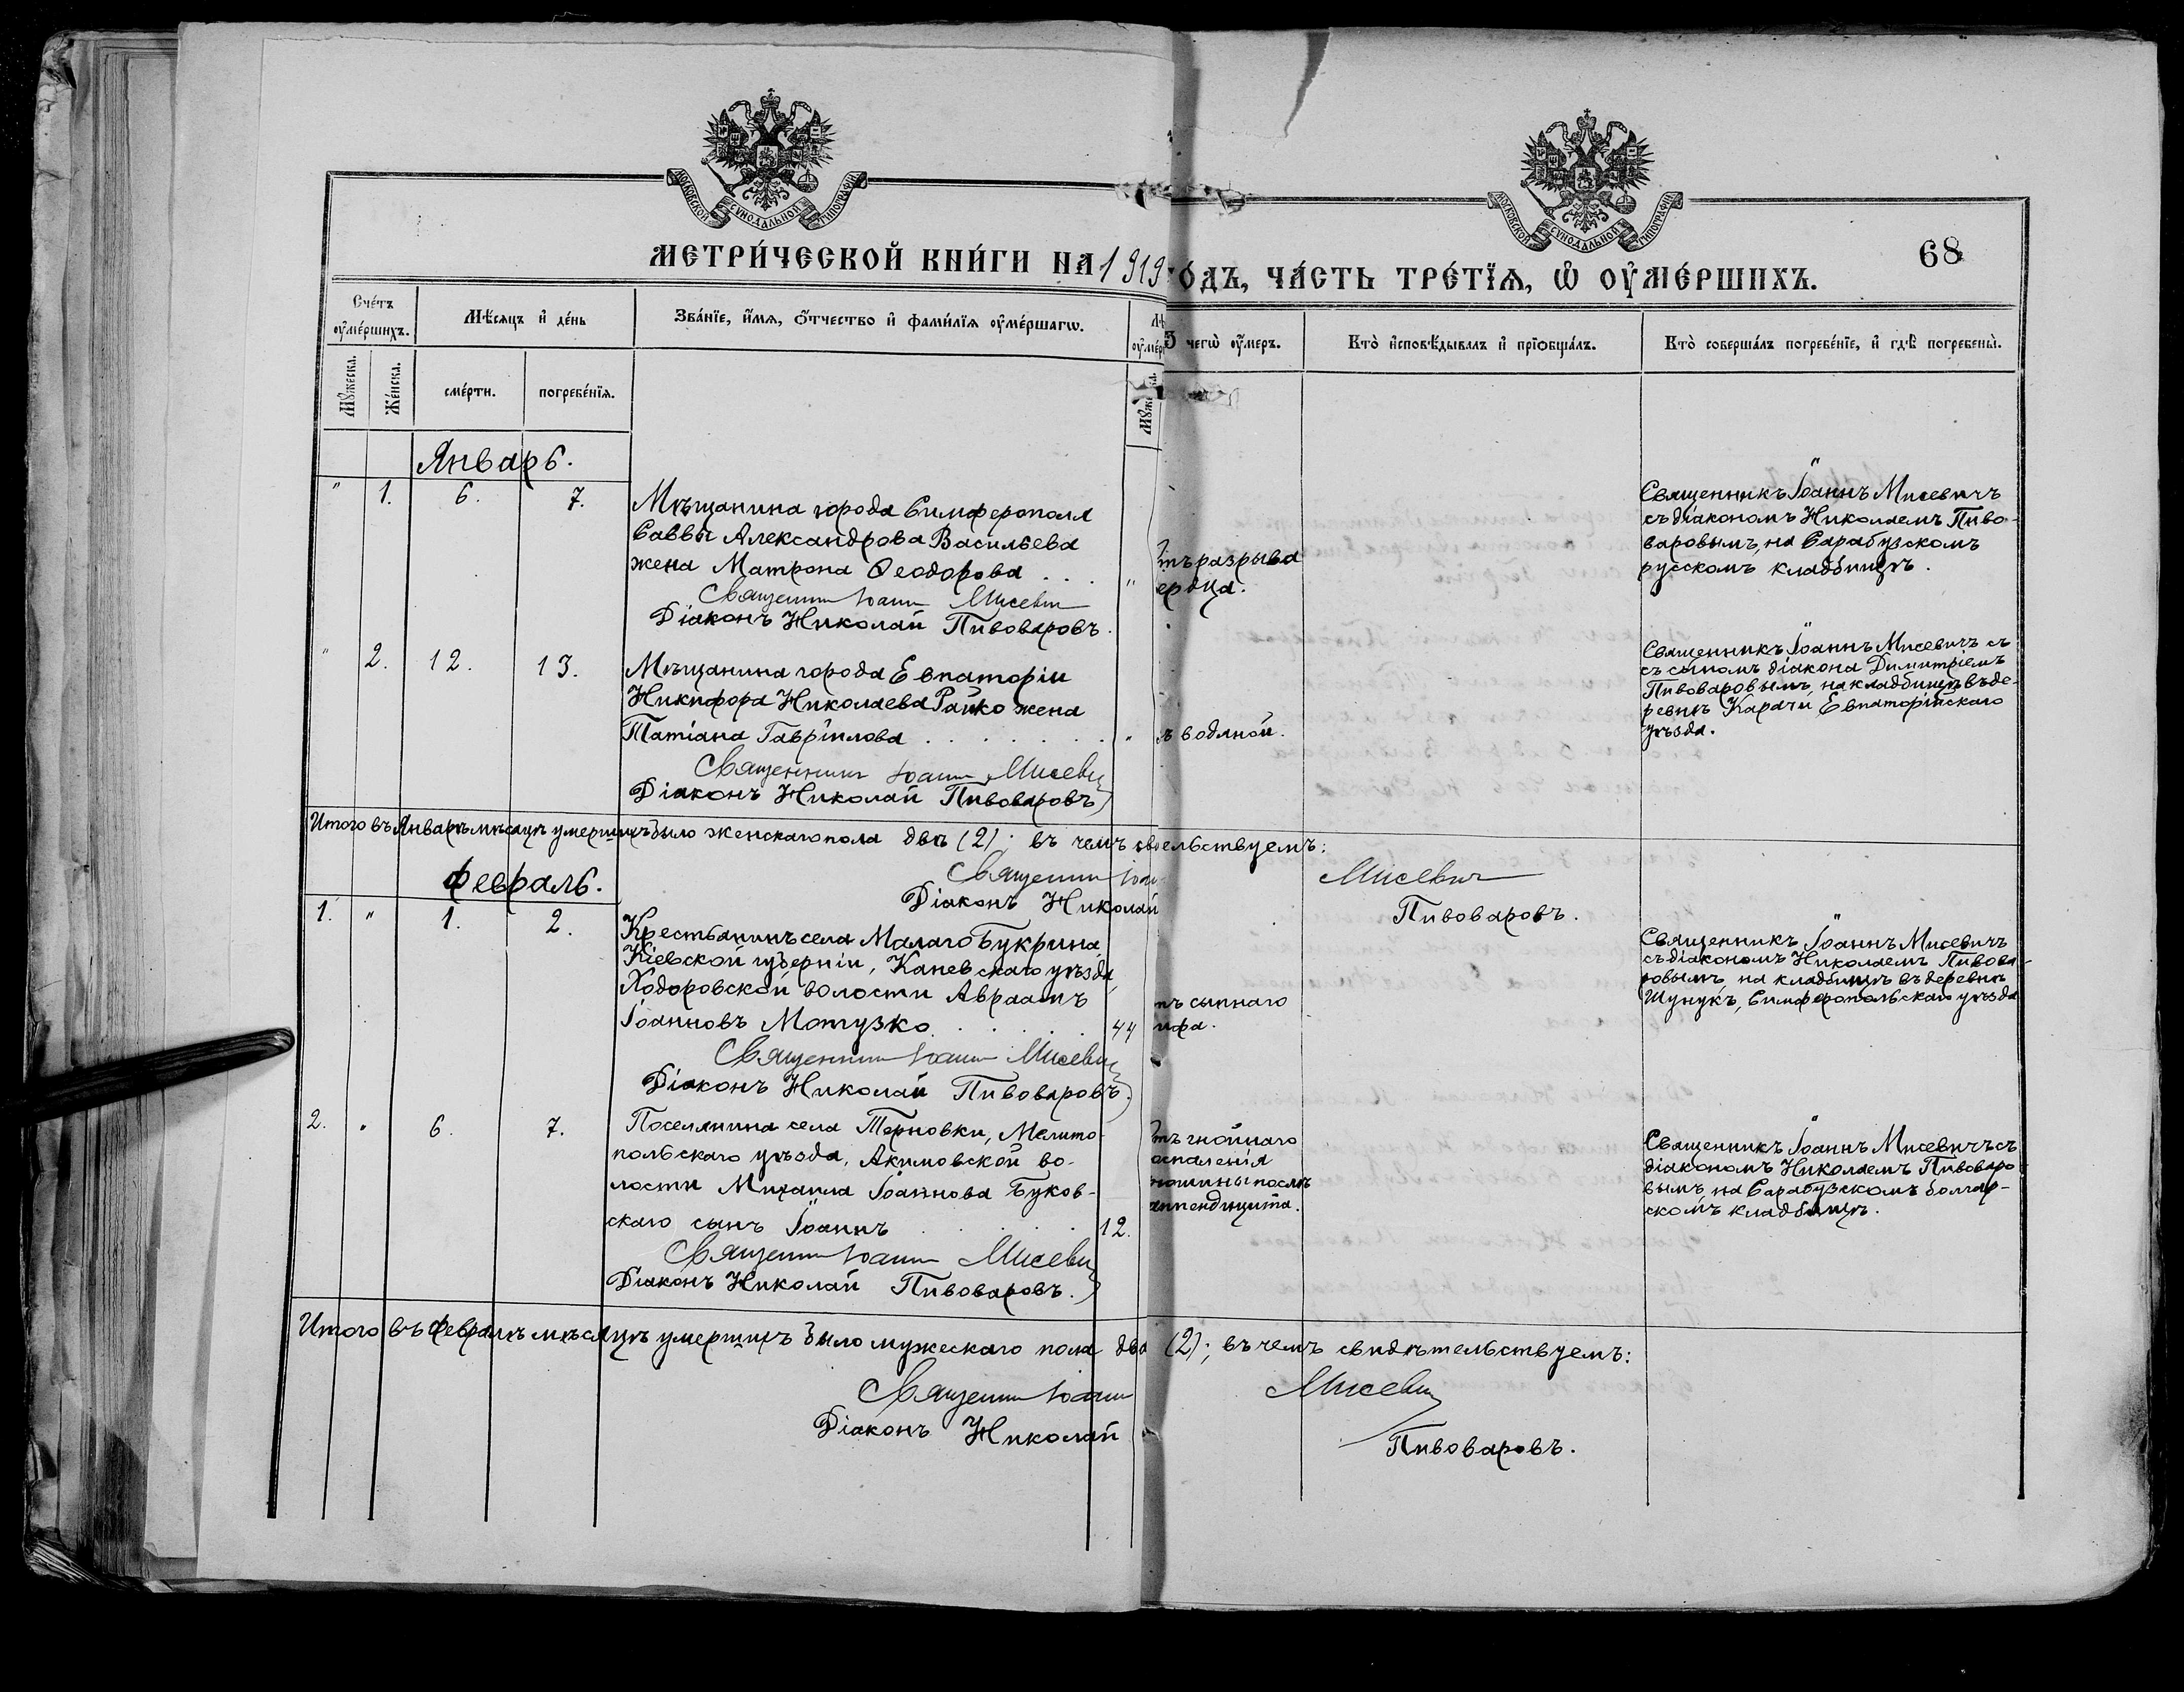 МОСКОВСКОЙ СѴНОДАЛЬНОЙ ТИПОГРАФІИ
МОСКОВСКОЙ СѴНОДАЛЬНОЙ ТИПОГРАФІИ
68
МЕТРИ́ЧЕСКОЙ КНИ́ГИ НА 1919
ГО́ДЪ, ЧА́СТЬ ТРЕ́ТЇѦ, Ѡ҆ ОУ҆МЕ́РШИХЪ.
Сче́тъ оу҆ме́ршихъ.
Мѣ́сяцъ и҆ де́нь
Зва́нїе, и҆́мя, о҆́тчество и҆ фами́лїя оу҆ме́ршагѡ.
оу҆ме́р
чегѡ̀ оу҆́меръ.
Кто̀ и҆сповѣ́дывалъ и҆ прїѻбща́лъ.
Кто̀ соверша́лъ погребе́нїе, и҆ гдѣ̀ погребены̀.
Мꙋжеска.
Же́нска.
сме́рти.
погребе́нїя.
Январь.
" 1. 6. 7.
Мѣщанина города Симферополя
Саввы Александрова Васильева
жена Матрона Ѳеодорова . . . "
Священникъ Іоаннъ Мисевичъ
Діаконъ Николай Пивоваровъ.
тъ разрыва
ердца.
Священникъ Іоаннъ Мисевичъ
съ діакономъ Николаемъ Пиво-
варовымъ, на Сарабузскомъ
русскомъ кладбищѣ.
" 2. 12. 13.
Мѣщанина города Евпаторіи
Никифора Николаева Райко жена
Татіана Гавріилова . . . . . . . "
Священникъ Іоаннъ Мисевичъ
Діаконъ Николай Пивоваровъ
ъ водяной.
Священникъ Іоаннъ Мисевичъ съ
съ сыномъ діакона Димитріемъ
Пивоваровымъ, на кладбищѣ въ де-
ревнѣ Карачи Евпаторійскаго
уѣзда.
Итого въ Январѣ мѣсяцѣ умершихъ было женскаго пола двѣ (2); въ чемъ свиельствуемъ:
Священникъ Іоан Мисевичъ
Діаконъ Николай Пивоваровъ.
Февраль.
1. " 1. 2.
Крестьянинъ села Малаго Букрина,
Кіевской губерніи, Каневскаго уѣзда,
Ходоровской волости Авраамъ
Іоанновъ Мотузко . . . . . 44
Священникъ Іоаннъ Мисевичъ
Діаконъ Николай Пивоваровъ.
тъ сыпнаго
ифа.
Священникъ Іоаннъ Мисевичъ
съ діакономъ Николаемъ Пивова-
ровымъ, на кладбищѣ въ деревнѣ
Шунукъ, Симферопольскаго уѣзда
2. " 6. 7.
Поселянина села Терновки, Мелито-
польскаго уѣзда, Акимовской во-
лости Михаила Іоаннова Буков-
скаго сынъ Іоаннъ . . . . . 12.
Священникъ Іоаннъ Мисевичъ
Діаконъ Николай Пивоваровъ.
тъ гнойнаго
оспаленія
юшины послѣ
аппендицита.
Священникъ Іоаннъ Мисевичъ съ
діакономъ Николаемъ Пивоваро-
вымъ, на Сарабузскомъ болгар-
скомъ кладбищѣ.
Итого въ Февралѣ мѣсяцѣ умершихъ было мужескаго пола два (2); въ чемъ свидѣтельствуемъ:
Священникъ Іоаннъ Мисевичъ
Діаконъ Николай Пивоваровъ.